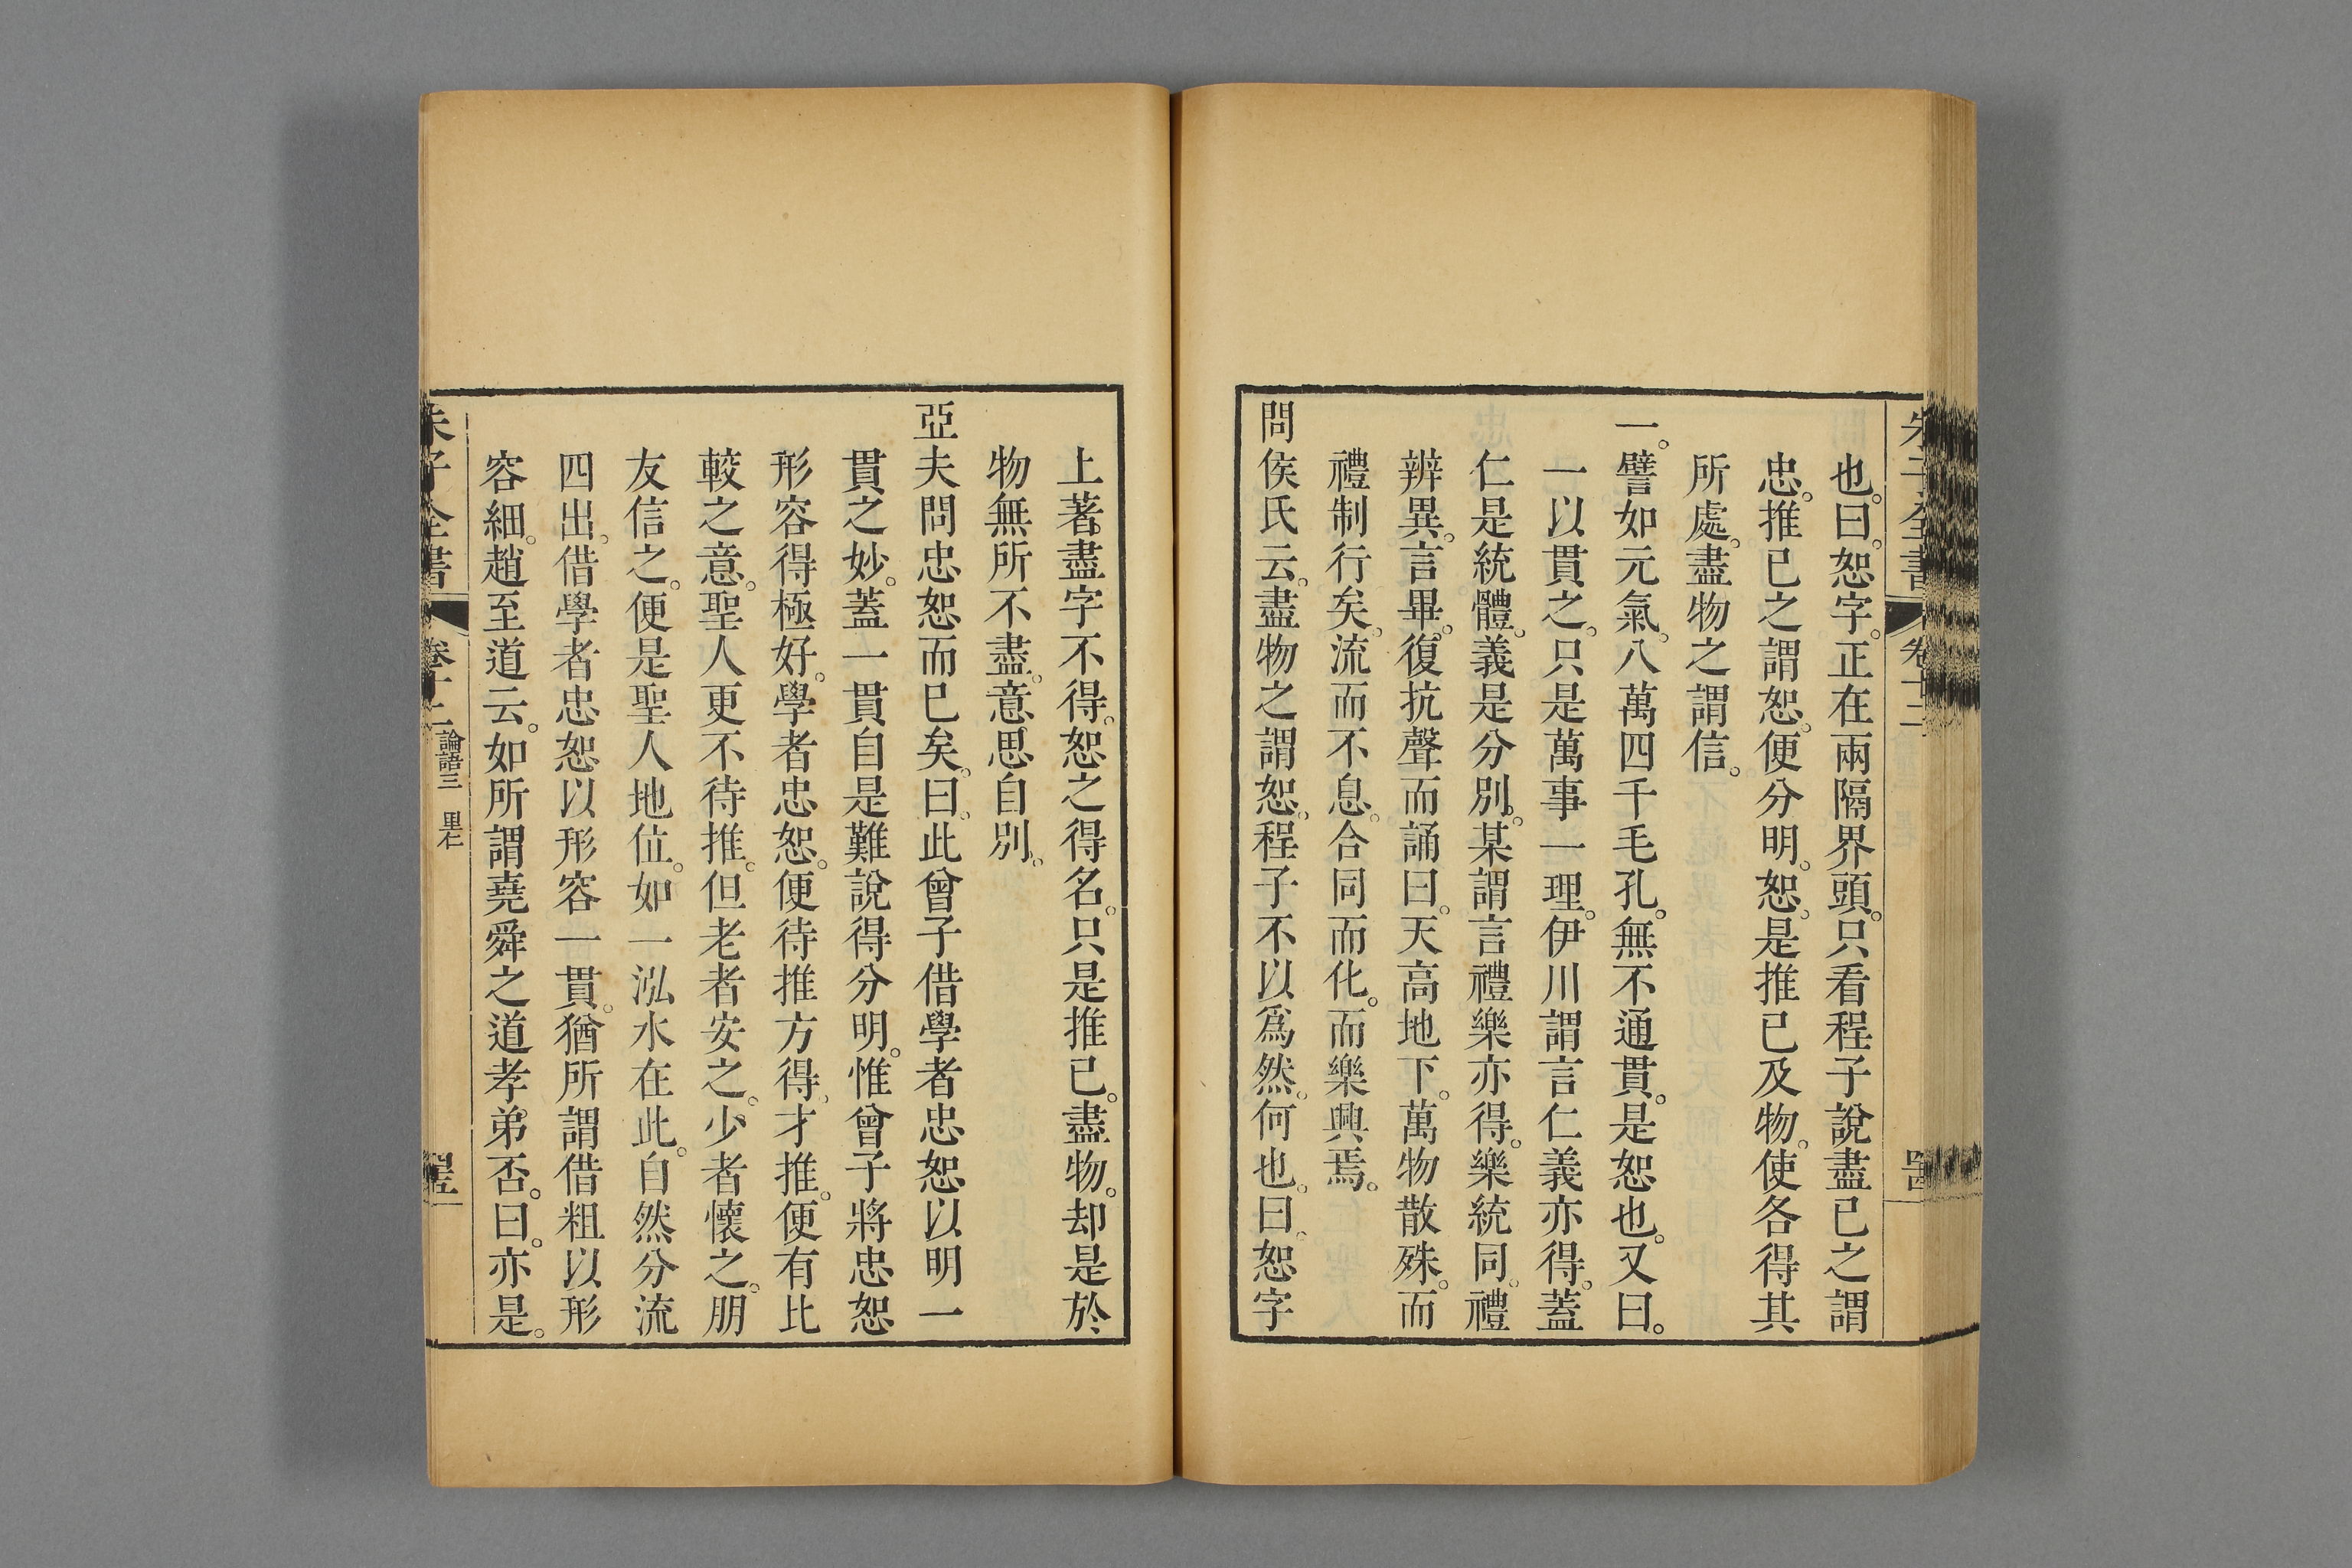 也。曰。恕字。正在兩隔界頭。只看程子說盡已之謂
忠。推已之謂恕。便分明。恕。是推已及物。使各得其
所處。盡物之謂信。
一。譬如元氣。八萬四千毛孔。無不通貫。是恕也。又曰。
一以貫之。只是萬事一理。伊川謂言仁義亦得。蓋
仁是統體。義是分別。某謂言禮樂亦得。樂統同。禮
辨異。言畢。復抗聲而誦曰。天高地下。萬物散殊。而
禮制行矣。流而不息。合同而化。而樂興焉。
問侯氏云。盡物之謂恕。程子不以爲然。何也。曰。恕字
上著盡字不得。恕之得名。只是推已。盡物。却是於
物無所不盡。意思自別。
亞夫問忠恕而已矣。曰。此曾子借學者忠恕以明一
貫之妙。蓋一貫自是難說得分明。惟曾子將忠恕
形容得極好。學者忠恕。便待推方得。才推。便有比
較之意。聖人更不待推。但老者安之。少者懷之。朋
友信之。便是聖人地位。如一泓水在此。自然分流
四出。借學者忠恕以形容一貫。猶所謂借粗以形
容細。趙至道云。如所謂堯舜之道孝弟否。曰。亦是。
朱子全書 卷十二 論語三 里仁